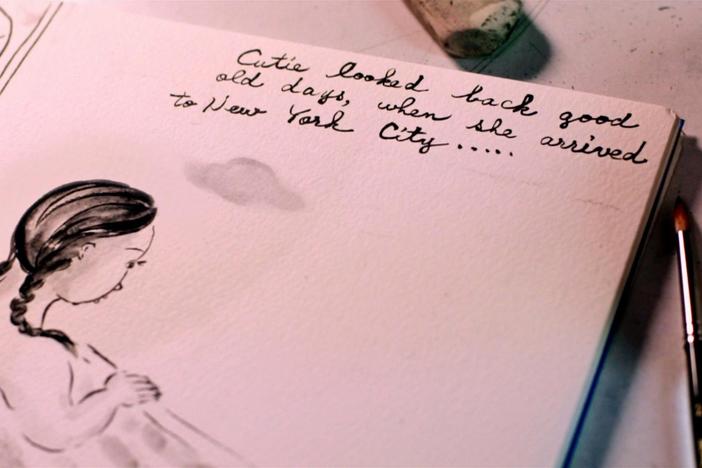 Cutie looked back good
old days, when she arrived
to New York City.....